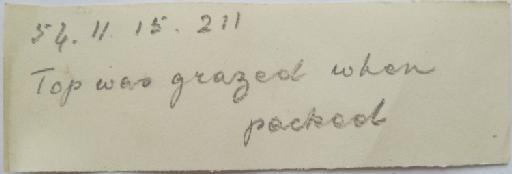 54. 11. 15. 211
Top was grazed when
packed